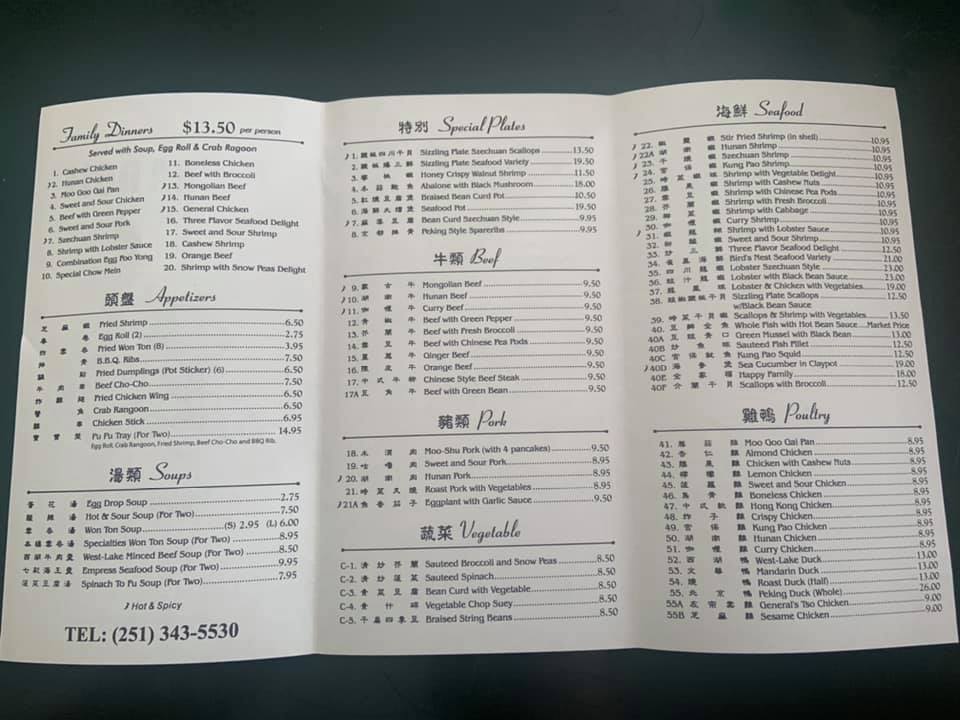 Family Dinners $13.50 per person
Served with Soup, Egg Roll & Crab Ragoon
1. Cashew Chicken
2. Hunan Chicken
3. Moo Goo Gai Pan
4. Sweet and Sour Chicken
5. Beef with Green Pepper
6. Sweet and Sour Pork
7. Szechuan Shrimp
8. Shrimp with Lobster Sauce
9. Combination Egg Foo Yong
10. Special Chow Mein
11. Boneless Chicken
12. Beef with Broccoli
13. Mongolian Beef
14. Hunan Beef
15. General Chicken
16. Three Flavor Seafood Delight
17. Sweet and Sour Shrimp
18. Cashew Shrimp
19. Orange Beef
20. Shrimp with Snow Peas Delight
頭盤 Appetizers
芝麻蝦 Fried Shrimp 6.50
春卷 Egg Roll (2) 2.75
炸雲吞 Fried Won Ton (8) 3.95
排骨 B.B.Q. Ribs 7.50
鍋貼 Fried Dumplings (Pot Sticker) (6) 6.50
牛肉串 Beef Cho-Cho 7.50
炸雞翅 Fried Chicken Wing 6.50
蟹角 Crab Rangoon 6.50
雞串 Chicken Stick 6.95
寶寶盤 Pu Pu Tray (For Two) 14.95
Egg Roll, Crab Rangoon, Fried Shrimp, Beef Cho-Cho and BBQ Rib.
湯類 Soups
蛋花湯 Egg Drop Soup 2.75
酸辣湯 Hot & Sour Soup (For Two) 7.50
雲吞湯 Won Ton Soup (S) 2.95 (L) 6.00
本樓雲吞湯 Specialties Won Ton Soup (For Two) 8.95
西湖牛肉羹 West-Lake Minced Beef Soup (For Two) 8.50
七彩海皇羹 Empress Seafood Soup (For Two) 9.95
菠菜豆腐湯 Spinach To Fu Soup (For Two) 7.95
Hot & Spicy
TEL: (251) 343-5530
特別 Special Plates
1. 鐵板四川干貝 Sizzling Plate Szechuan Scallops 13.50
2. 鐵板爆三鮮 Sizzling Plate Seafood Variety 19.50
3. 蜜桃蝦 Honey Crispy Walnut Shrimp 11.50
4. 冬菇鮑魚 Abalone with Black Mushroom 18.00
5. 紅燒豆腐煲 Braised Bean Curd Pot 10.50
6. 海鮮大燴煲 Seafood Pot 19.50
7. 麻婆豆腐 Bean Curd Szechuan Style 9.95
8. 京都排骨 Peking Style Spareribs 9.95
牛類 Beef
9. 蒙古牛 Mongolian Beef 9.50
10. 湖南牛 Hunan Beef 9.50
11. 咖喱牛 Curry Beef 9.50
12. 青椒牛 Beef with Green Pepper 9.50
13. 芥蘭牛 Beef with Fresh Broccoli 9.50
14. 雪豆牛 Beef with Chinese Pea Pods 9.50
15. 薑蔥牛 Ginger Beef 9.50
16. 陳皮牛 Orange Beef 9.50
17. 中式牛柳 Chinese Style Beef Steak 9.50
17A 豆角牛 Beef with Green Bean 9.50
豬類 Pork
18. 木須肉 Moo-Shu Pork (with 4 pancakes) 9.50
19. 咕嚕肉 Sweet and Sour Pork 8.95
20. 湖南肉 Hunan Pork 8.95
21. 時菜叉燒 Roast Pork with Vegetables 8.95
21A 魚香茄子 Eggplant with Garlic Sauce 9.50
蔬菜 Vegetable
C-1. 清炒芥蘭 Sauteed Broccoli and Snow Peas 8.50
C-2. 清炒菠菜 Sauteed Spinach 8.50
C-3. 青菜豆腐 Bean Curd with Vegetable 8.50
C-4. 素什碎 Vegetable Chop Suey 8.50
C-5. 干扁四季豆 Braised String Beans 8.50
海鮮 Seafood
22. Stir Fried Shrimp (in shell) 10.95
22A 湖南蝦 Hunan Shrimp 10.95
23. 干燒蝦 Szechuan Shrimp 10.95
24. 宮保蝦 Kung Pao Shrimp 10.95
25. 時菜蝦球 Shrimp with Vegetable Delight 10.95
26. 腰果蝦 Shrimp with Cashew Nuts 10.95
27. 雪豆蝦 Shrimp with Chinese Pea Pods 10.95
28. 芥蘭蝦 Shrimp with Fresh Broccoli 10.95
29. Shrimp with Cabbage 10.95
30. 咖喱蝦 Curry Shrimp 10.95
31. 蝦龍糊 Shrimp with Lobster Sauce 10.95
32. 甜酸蝦 Sweet and Sour Shrimp 10.95
33. 炒三鮮 Three Flavor Seafood Delight 12.50
34. 雀巢海鮮 Bird's Nest Seafood Variety 21.00
35. 四川龍蝦 Lobster Szechuan Style 23.00
36. 豉汁龍蝦 Lobster with Black Bean Sauce 23.00
37. 龍鳳球 Lobster & Chicken with Vegetables 19.00
38. 豉椒鐵板干貝 Sizzling Plate Scallops 12.50
w/Black Bean Sauce
39. 時菜干貝蝦 Scallops & Shrimp with Vegetables 13.50
40. 豆瓣全魚 Whole Fish with Hot Bean Sauce Market Price
40A 豆豉青口 Green Mussel with Black Bean 13.50
40B 炒魚球 Sauteed Fish Fillet 12.50
40C 宮保魷魚 Kung Pao Squid 12.50
40D 海參煲 Sea Cucumber in Claypot 19.00
40E 全家福 Happy Family 18.00
40F 介蘭干貝 Scallops with Broccoli 12.50
雞鴨 Poultry
41. 蘑菇雞 Moo Goo Gai Pan 8.95
42. 杏仁雞 Almond Chicken 8.95
43. 腰果雞 Chicken with Cashew Nuts 8.95
44. 檸檬雞 Lemon Chicken 8.95
45. 菠蘿雞 Sweet and Sour Chicken 8.95
46. 無骨雞 Boneless Chicken 8.95
47. 中式軟雞 Hong Kong Chicken 8.95
48. 炸子雞 Crispy Chicken 8.95
49. 宮保雞 Kung Pao Chicken 8.95
50. 湖南雞 Hunan Chicken 8.95
51. 咖喱雞 Curry Chicken 8.95
52. 西湖鴨 West-Lake Duck 13.00
53. 文雅鴨 Mandarin Duck 13.00
54. 燒鴨 Roast Duck (Half) 13.00
55. 北京鴨 Peking Duck (Whole) 26.00
55A 左宗棠雞 General's Tso Chicken 9.00
55B 芝麻雞 Sesame Chicken 9.00